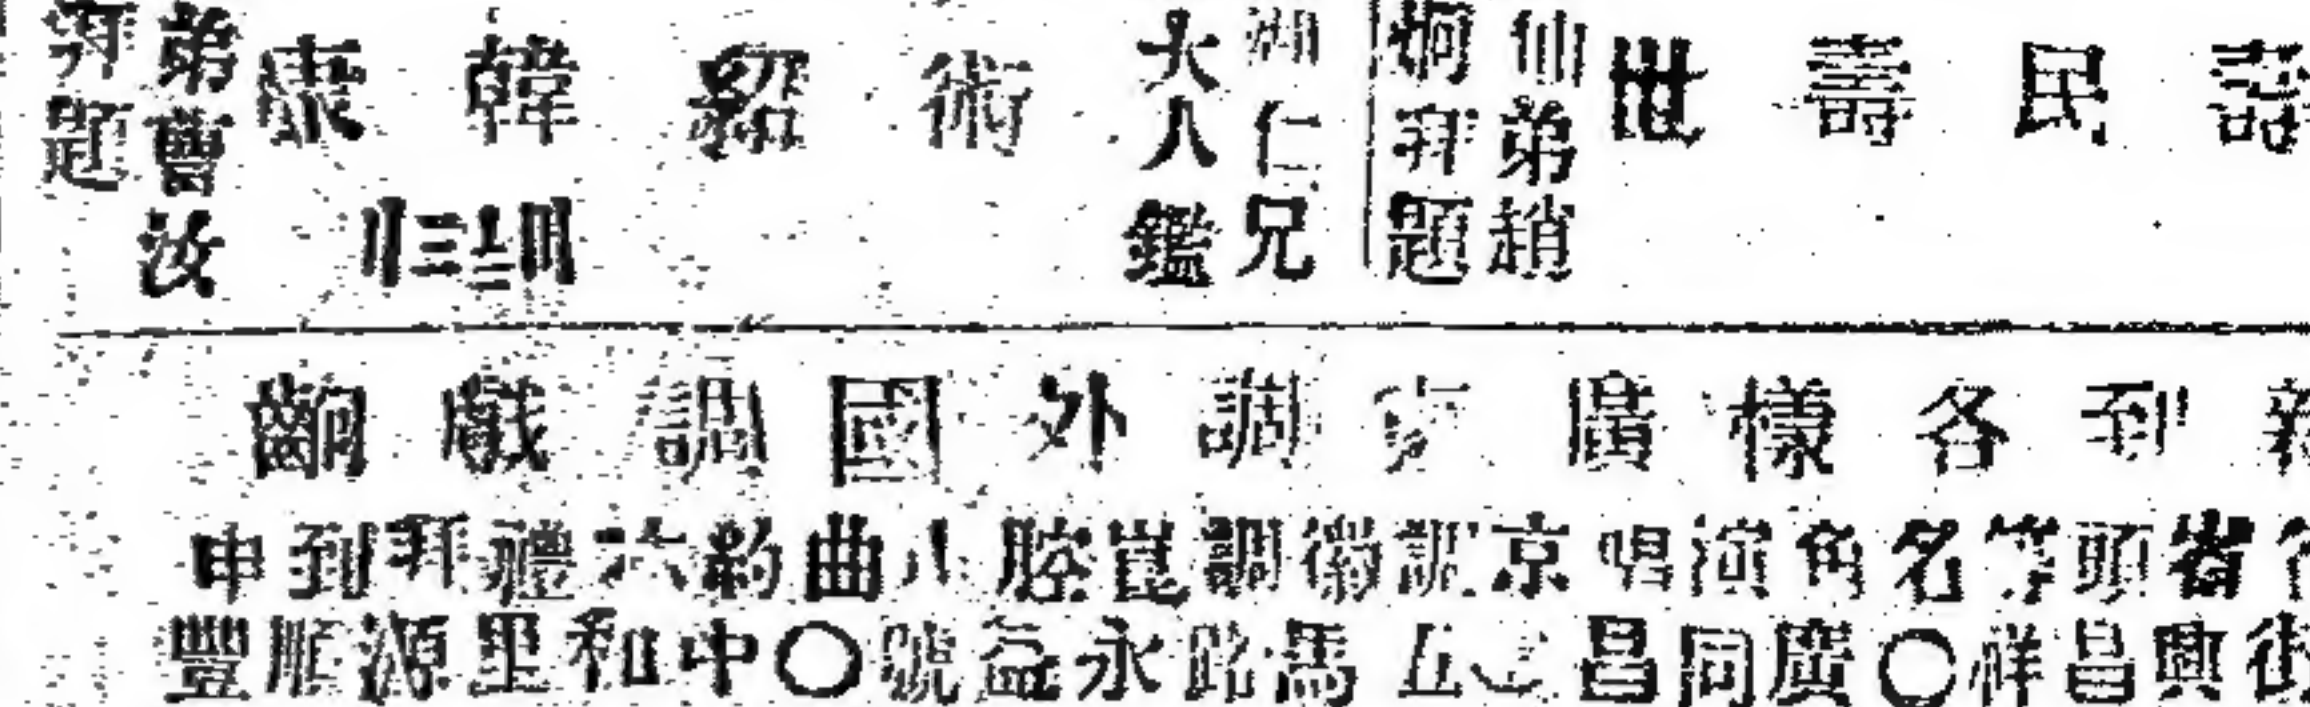 壽民壽世
仙弟趙
炯拜題
洲仁兄
大人鑑
術紹韓康
弟曹汝
拜題
新到各樣廣調外國調戲齣
省頭等名角演唱京調徽調崑腔八曲約六禮拜到申
街興昌祥〇廣同昌五馬路永益號〇中和里源順豐